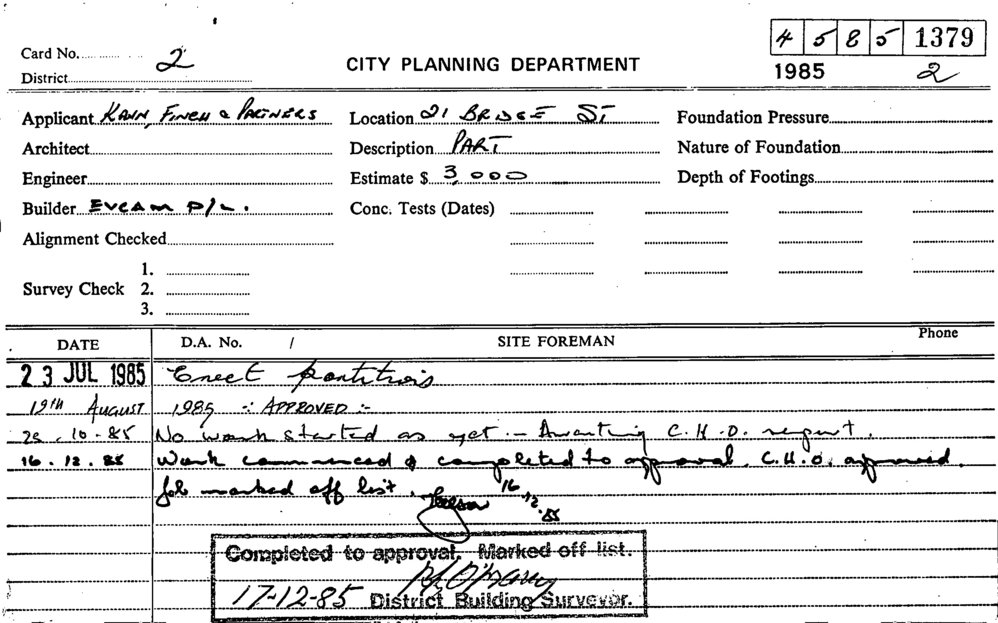 4 5 8 5 1379
Card No. 2 CITY PLANNING DEPARTMENT 1985 2
District
Applicant KANN, FINCH & PARTNERS Location 21 BRIDGE ST Foundation Pressure
Architect Description PART Nature of Foundation
Engineer Estimate $ 3,000 Depth of Footings
Builder EVCAM P/L. Conc. Tests (Dates)
Alignment Checked
1.
Survey Check 2.
3.
DATE D.A. No. / SITE FOREMAN Phone
23 JUL 1985 Erect partitions
19TH AUGUST 1985 -: APPROVED :-
.10.85 No work started as yet - Awaiting C.H.O. report.
16.12.85 Work commenced & completed to approval. C.H.O. approved.
Job marked off list. 16.12.85
Completed to approval. Marked off list.
17-12-85 District Building Surveyor.